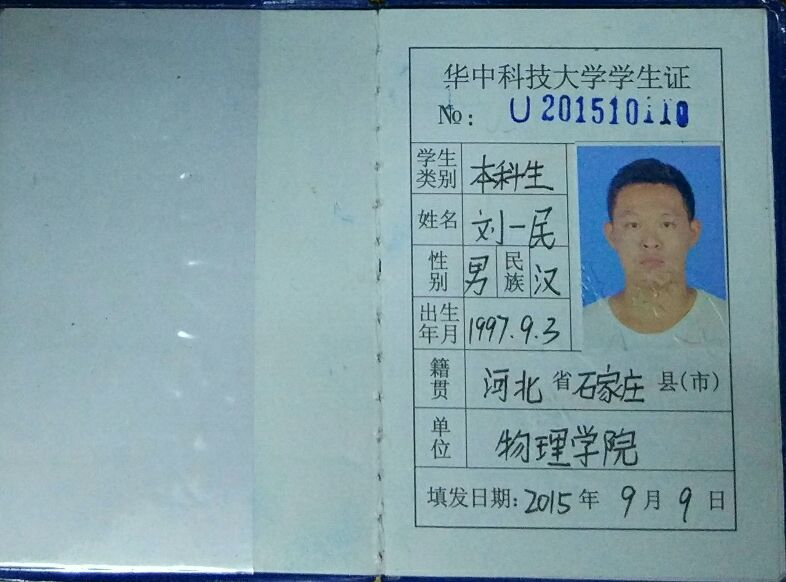 华中科技大学学生证
№: U201510110
学生类别 本科生
姓名 刘一民
性别 男 民族 汉
出生年月 1997.9.3
籍贯 河北省石家庄县(市)
单位 物理学院
填发日期:2015年9月9日